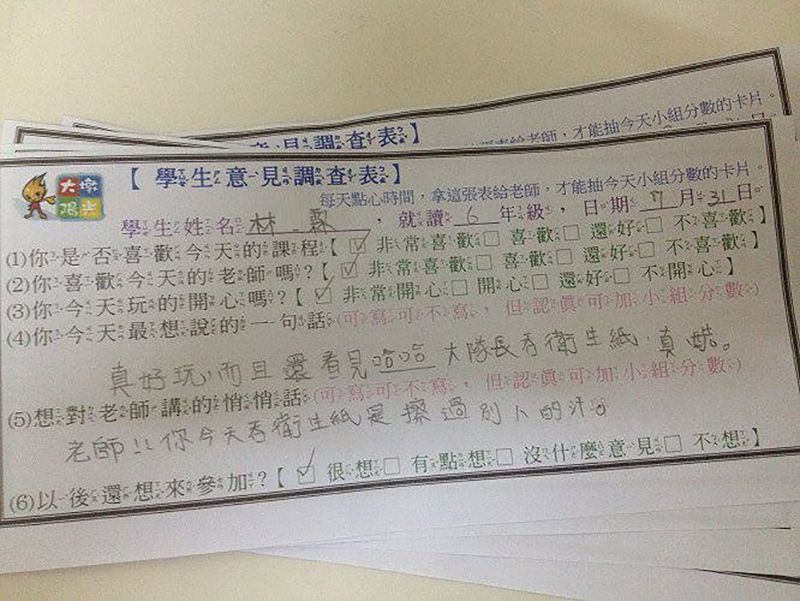 意見調查表】
表給老師，才能抽今天小組分數的卡片。
大墩
陽光
【 學生意見調查表】
每天點心時間，拿這張表給老師，才能抽今天小組分數的卡片。
學生姓名 林 霖 ，就讀 6 年級，日期 7 月 31 日。
(1)你是否喜歡今天的課程!【 ☑ 非常喜歡□ 喜歡□ 還好□ 不喜歡】
(2)你喜歡今天的老師嗎?【 ☑ 非常喜歡□ 喜歡□ 還好□ 不喜歡】
(3)你今天玩的開心嗎?【 ☑ 非常開心□ 開心□ 還好□ 不開心】
(4)你今天最想說的一句話(可寫可不寫，但認真可加小組分數)
真好玩,而且還看見哈哈大隊長吞衛生紙,真酷。
(5)想對老師講的悄悄話(可寫可不寫，但認真可加小組分數)
老師!!你今天吞衛生紙是擦過別人的汗。
(6)以後還想來參加?【 ☑ 很想□ 有點想□ 沒什麼意見□ 不想】